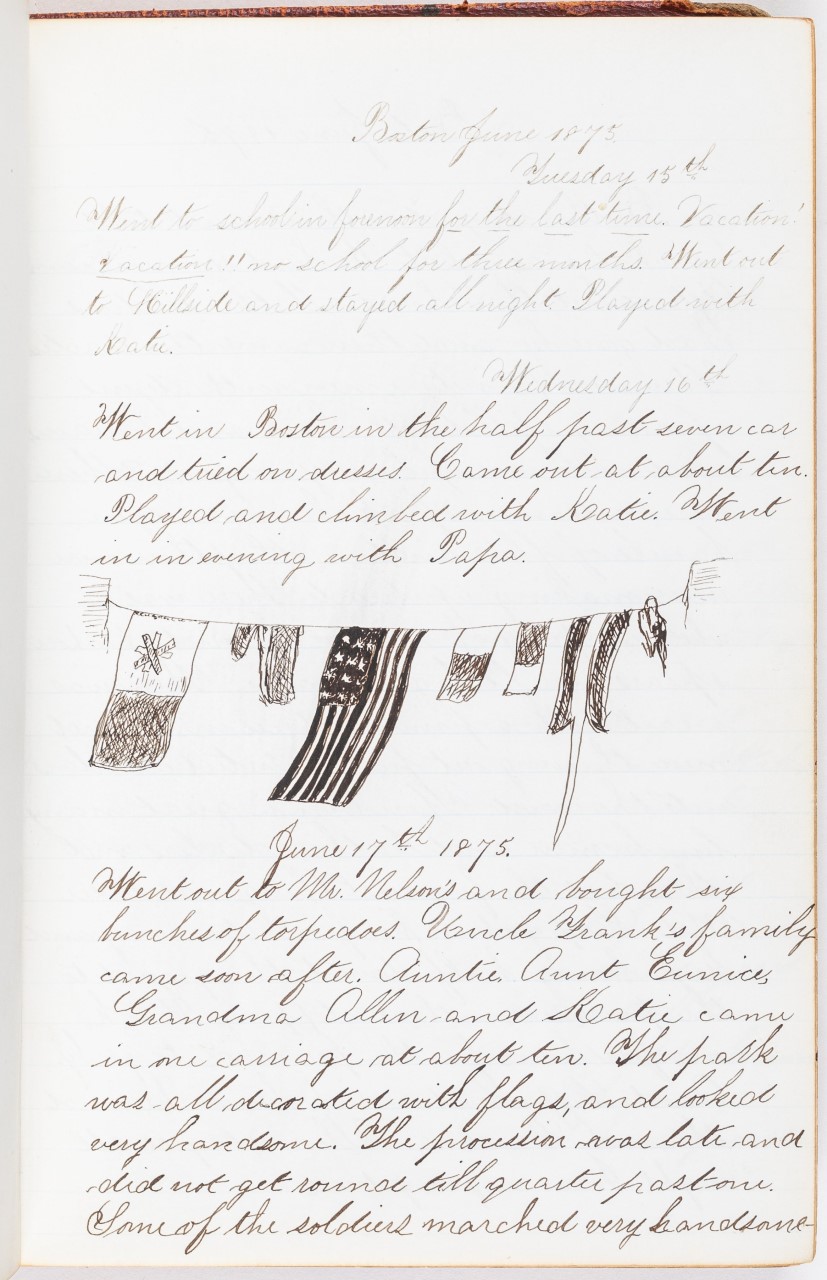 Boston June 1875.
Tuesday 15th
Went to school in forenoon for the last time. Vacation!
Vacation!! no school for three months. Went out
to Hillside and stayed all night. Played with
Katie.
Wednesday 16th
Went in Boston in the half past seven car
and tried on dresses. Came out at about ten.
Played and climbed with Katie. Went
in in evening with Papa.
June 17th 1875.
Went out to Mr. Nelson's and bought six
bunches of torpedoes. Uncle Frank's family
came soon after. Auntie, Aunt Eunice,
Grandma Allen and Katie came
in one carriage at about ten. The park
was all decorated with flags, and looked
very handsome. The procession was late and
did not get round till quarter past one.
Some of the soldiers marched very handsome-